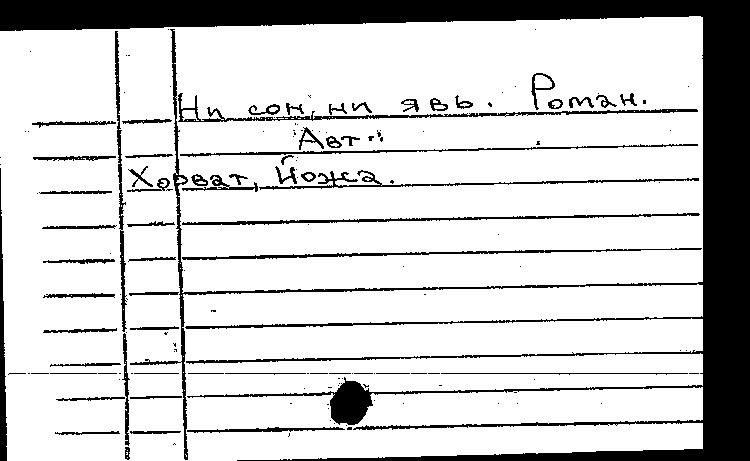 Ни сон, ни явь. Роман.
Авт.:
Хорват, Йожа.